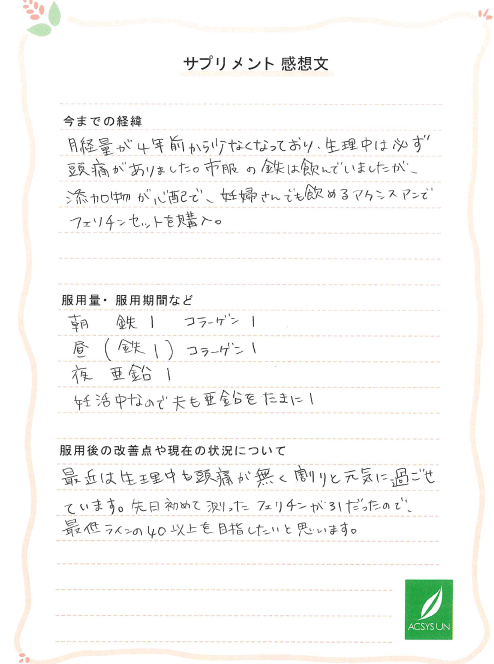 サプリメント 感想文
今までの経緯
月経量が4年前から少なくなっており、生理中は必ず
頭痛がありました。市販の鉄は飲んでいましたが、
添加物が心配で、妊婦さんでも飲めるアクシスアンで
フェリチンセットを購入。
服用量・服用期間など
朝 鉄 1 コラーゲン 1
昼 (鉄 1) コラーゲン 1
夜 亜鉛 1
妊活中なので夫も亜鉛をたまに1
服用後の改善点や現在の状況について
最近は生理中も頭痛が無く割りと元気に過ごせ
ています。先日初めて測ったフェリチンが31だったので、
最低ラインの40以上を目指したいと思います。
ACSYS UN